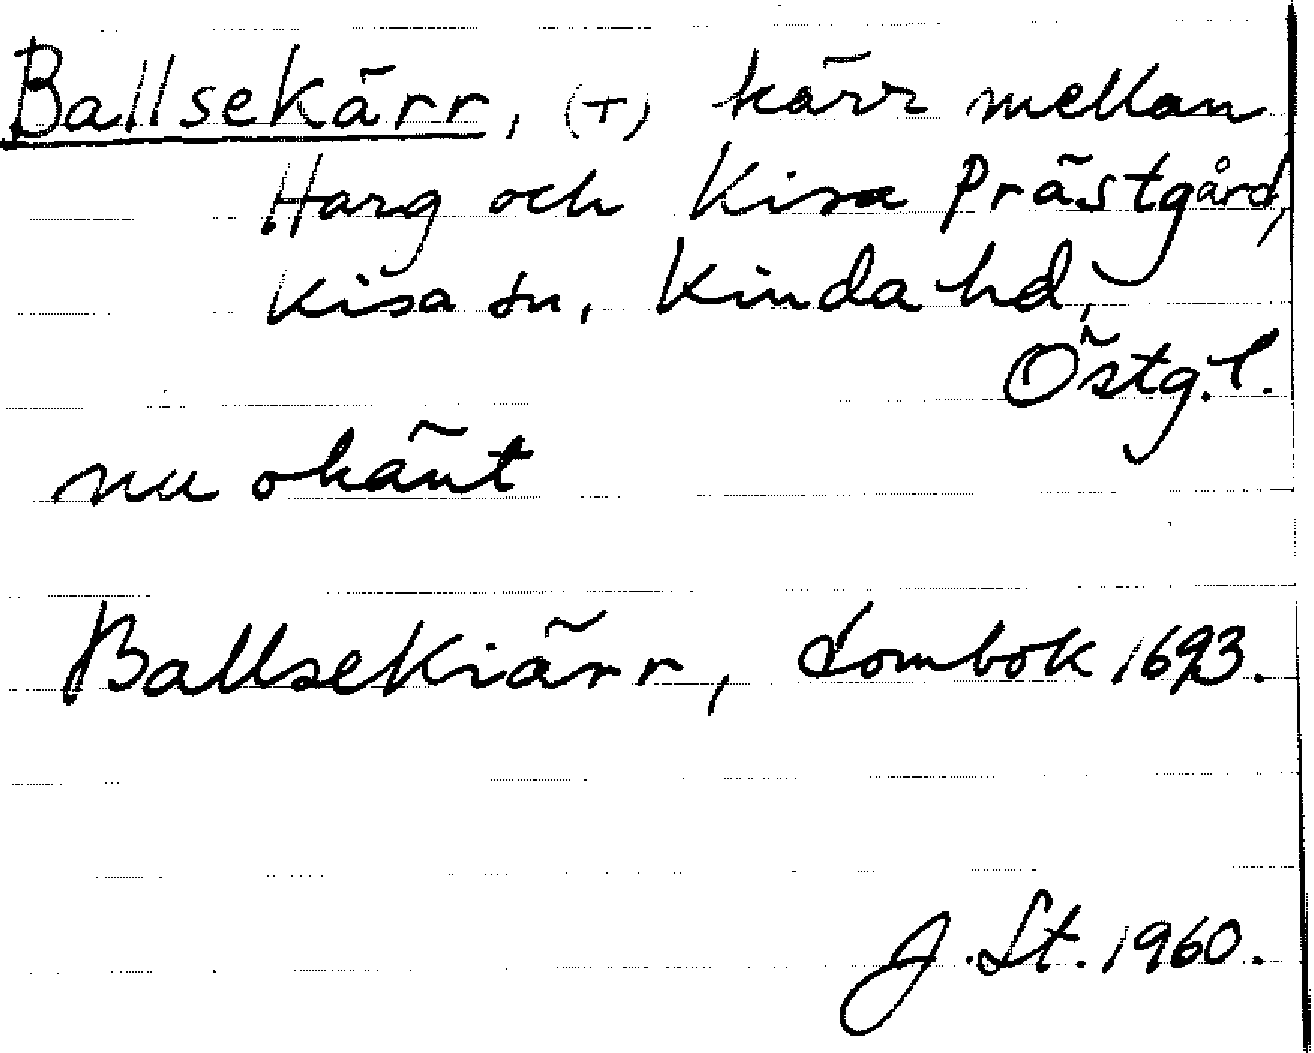 Ballsekärr, (T) kärr mellan
Harg och Kisa Prästgård,
Kisa sn, Kinda hd,
Östg. l.
nu okänt
Ballsekiärr, dombok 1693.
J. St. 1960.